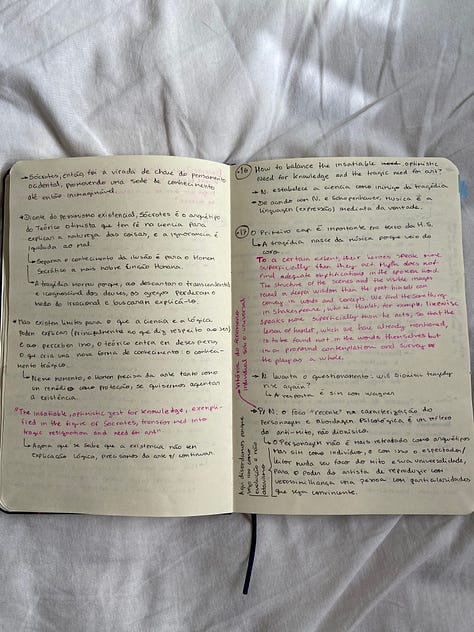 → Sócrates, então foi a virada de chave do pensamento
ocidental, promovendo uma sede de conhecimento
até então inimaginável.
• Diante do pessimismo existencial, Sócrates é o arquétipo
do Teórico Otimista que tem fé na ciência para
explicar a natureza das coisas, e a ignorância é
igualada ao mal.
↳ Separar o conhecimento da ilusão é para o Homem
Socrático a mais nobre função Humana.
↳ A tragédia morreu porque, ao descartar o transcendental
e incognoscível dos deuses, os gregos perderam o
medo do irracional e buscaram explicá-lo.
• Mas existem limites para o que a ciência e a lógica
podem explicar (principalmente no que diz respeito ao ser)
e ao perceber isso, o teórico entra em desespero,
o que cria uma nova forma de conhecimento: o conheci-
mento trágico.
↳ Nesse momento, o Homem precisa da arte tanto como
um remédio como proteção, se quisermos aguentar
a existência.
"The insatiable, optimistic zest for knowledge, exempli-
fied in the figure of Socrates, transformed into
tragic resignation and need for art".
↳ Agora que se sabe que a existência não tem
explicação lógica, precisamos da arte p/ continuar.
•16 How to balance the insatiable optimistic
need for knowledge and the tragic need for art?
→ N. estabelece a ciência como inimigo da tragédia
De acordo com N. e Schopenhauer, Música é a
linguagem (expressão) imediata da vontade.
•17 O Primeiro cap. é importante em termo da H.S.
↳ A tragédia nasce da música porque veio do
coro.
To a certain extent, their heroes speak more
superficially than they act; myth does not
find adequate objectification in the spoken word.
The structure of the scenes and the visible images
reveal a deeper wisdom than the poet himself can
convey in words and concepts. We find the same thing
in Shakespeare, whose Hamlet, for example, likewise
speaks more superficially than he acts, so that the
lesson of Hamlet, which we have already mentioned,
is to be found not in the words themselves but
in a profound contemplation and survey of
the play as a whole.
N. levanta o questionamento: will Dionisic tragedy
rise again?
↳ A resposta é sim com Wagner
P/ N. o foco "recente" na caracterização do
personagem e abordagem psicológica é um reflexo
do anti-mito, não dionisíaco.
↳ O personagem não é mais retratado como arquétipos
mas sim como indivíduo, e com isso o espectador/
leitor nada seu foco do mito e sua universalidade,
para o poder do artista de reproduzir com
verossimilhança uma pessoa com particularidades
que seja convincente.